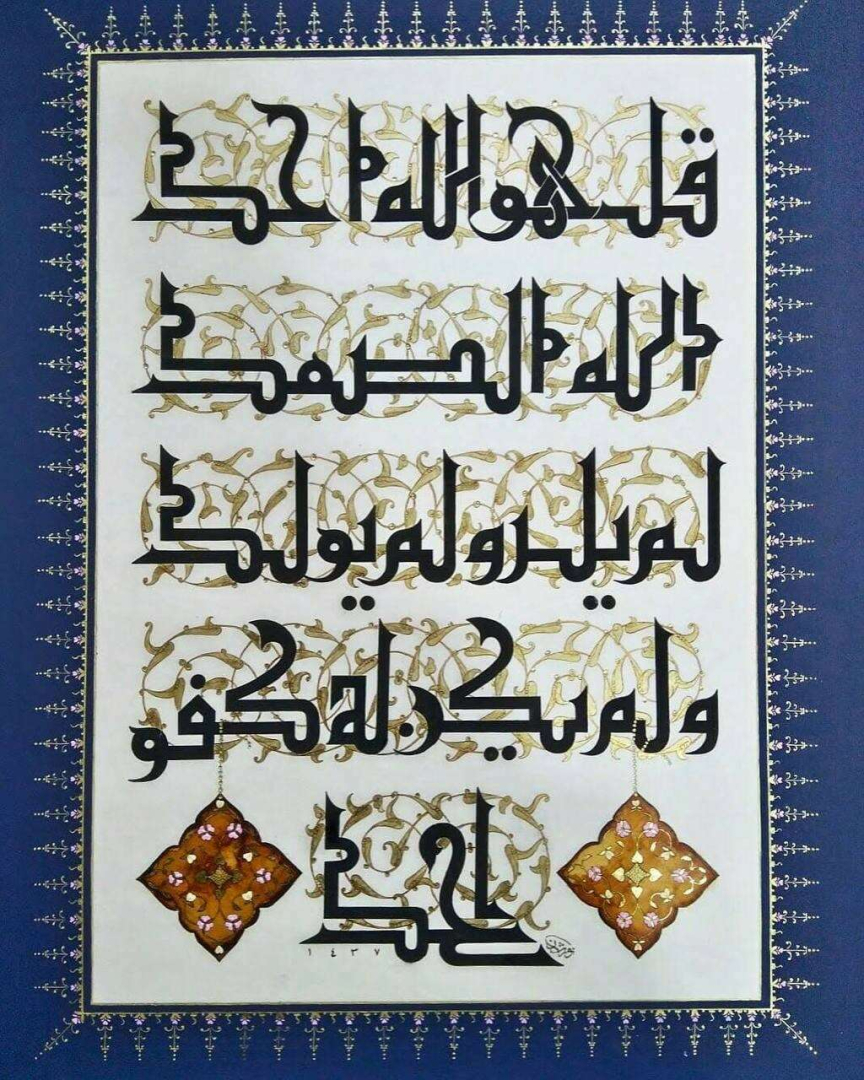 قل هو الله احد
الله الصمد
لم يلد ولم يولد
ولم يكن له كفو
احد
١٤٣٧